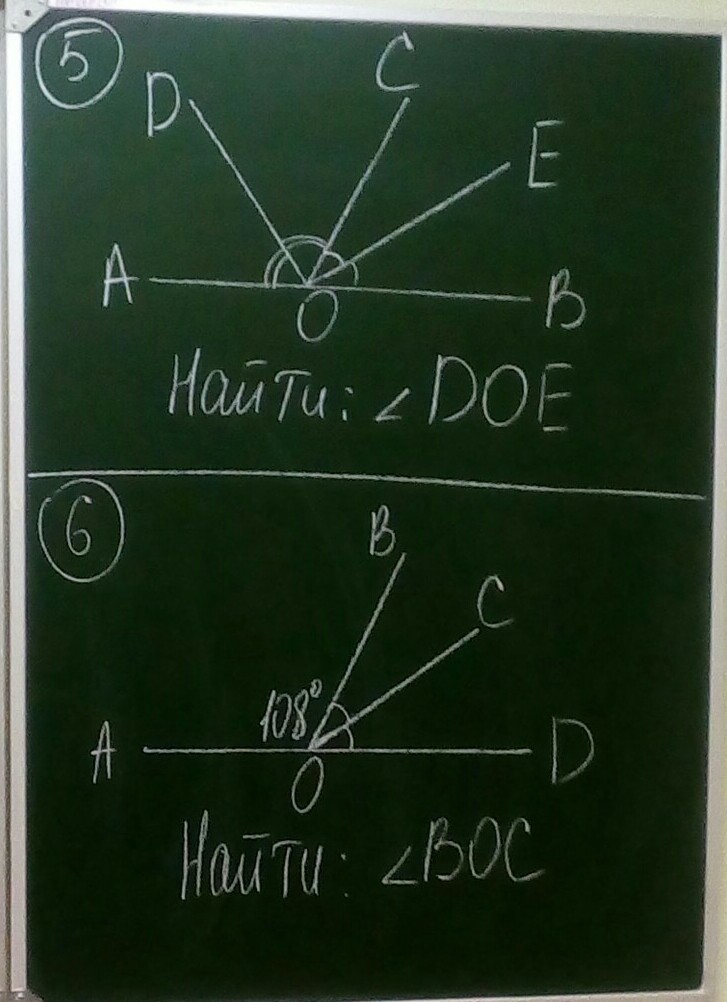 5
D
C
E
A
O
B
Найти: ∠DOE
6
B
C
108°
A
O
D
Найти: ∠BOC